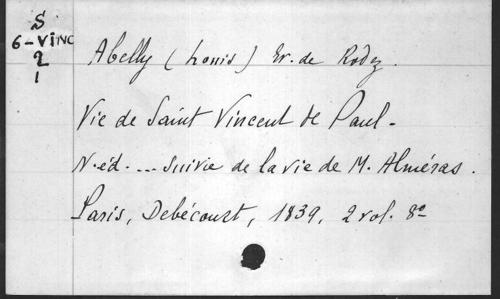 S
6-VINC
2
1
Abelly (Louis) Ev. de Rodez.
Vie de Saint Vincent de Paul.
N. éd. ... suivie de la vie de M. Alméras.
Paris, Debécourt, 1839, 2 vol. 8º